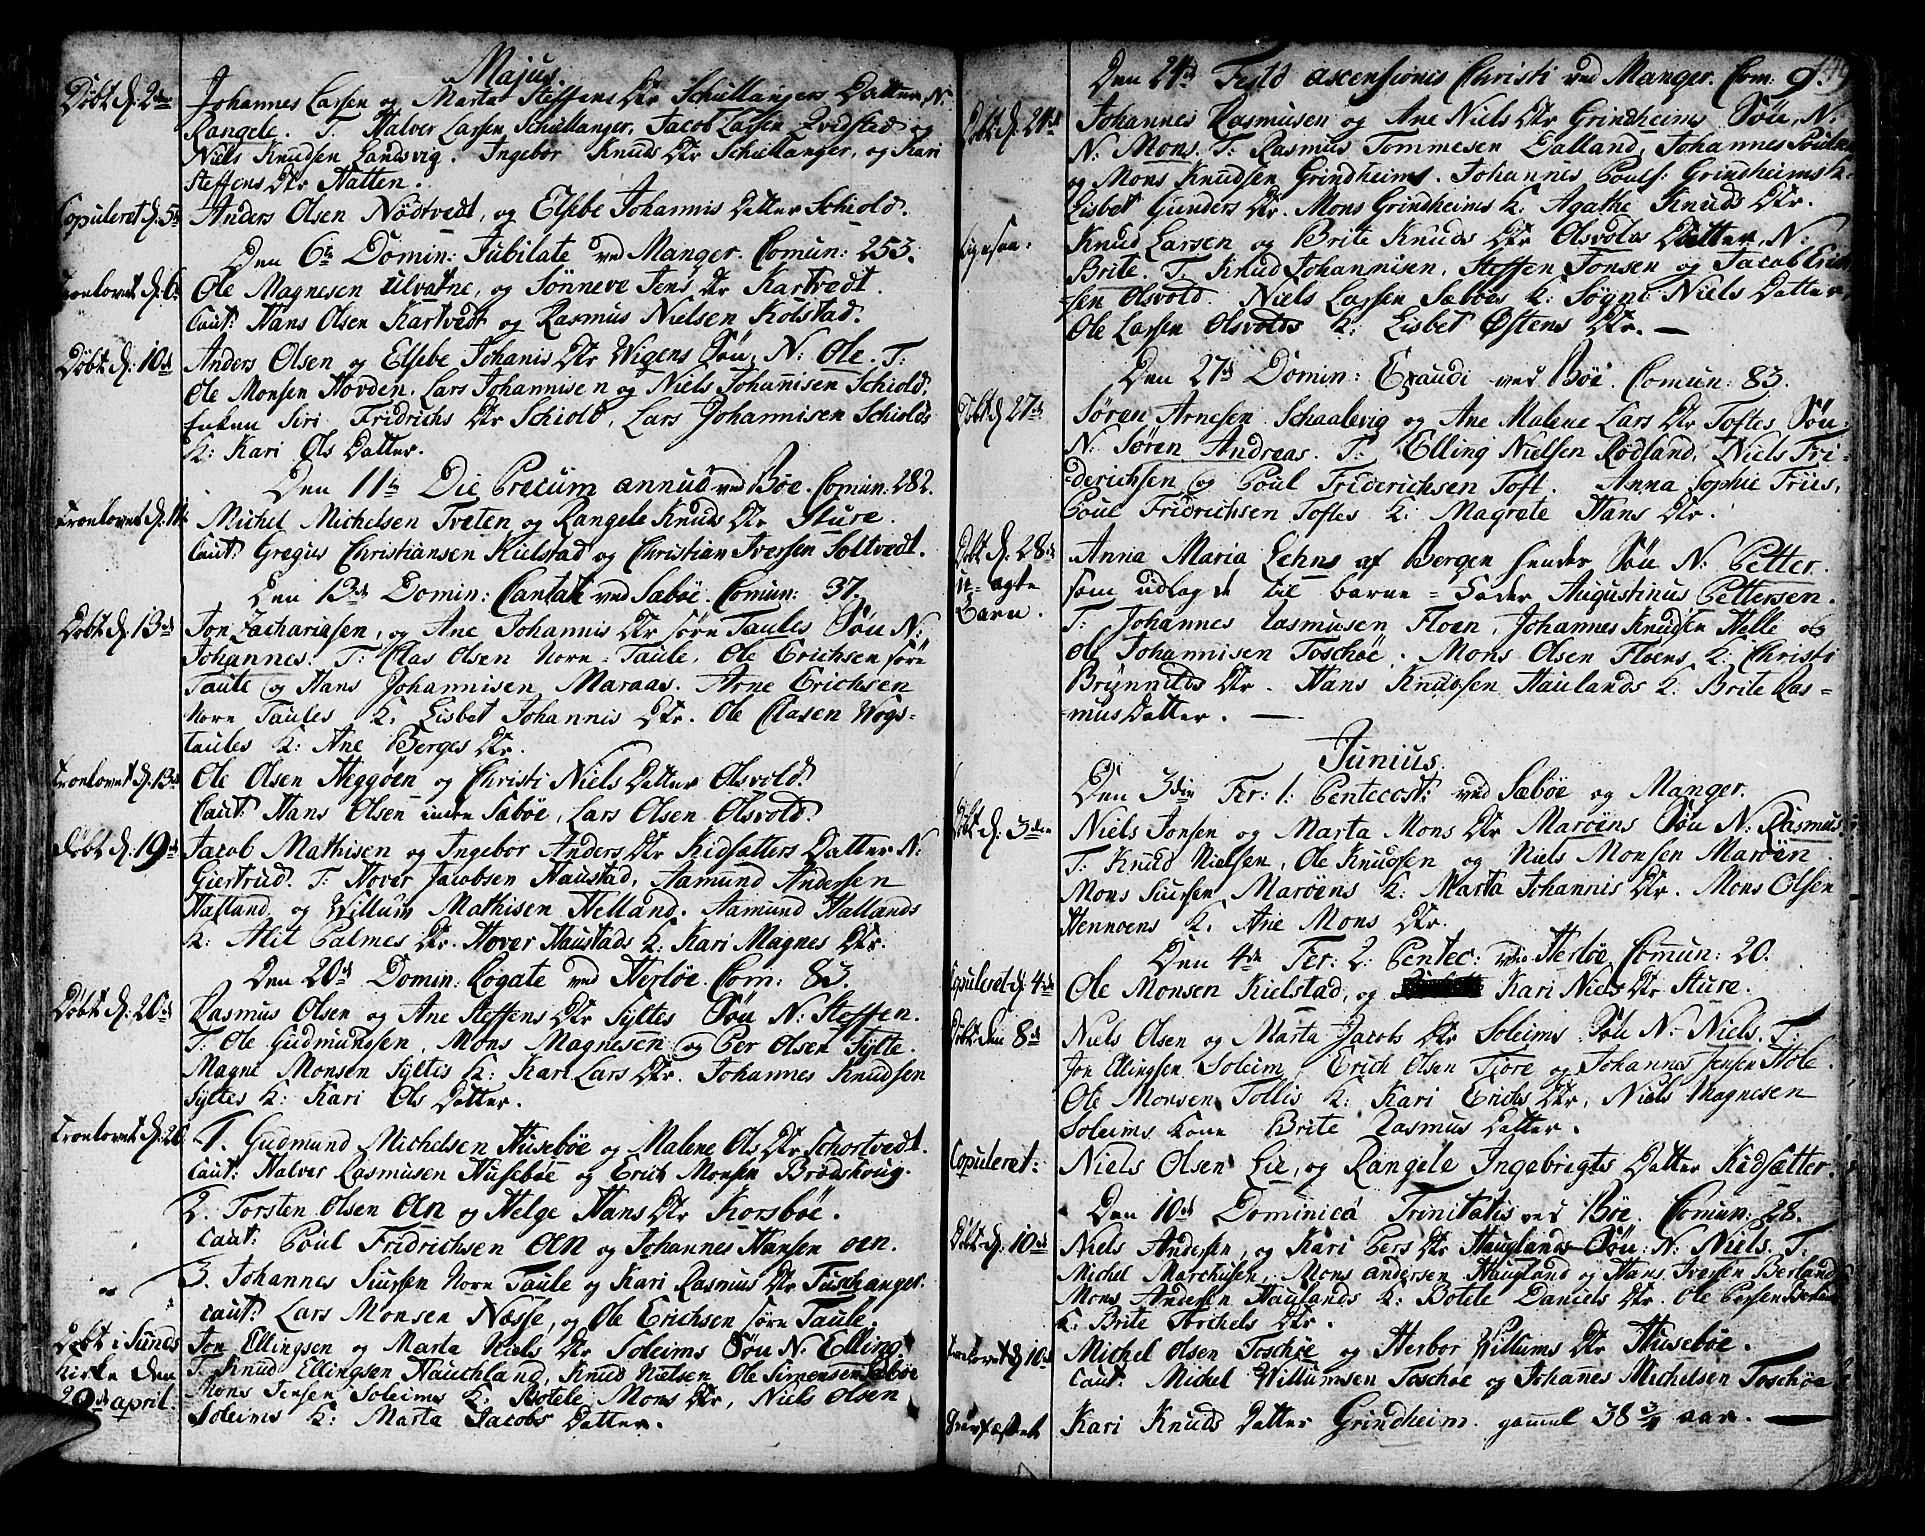 Majus.
Døbt d. 2den Johannes Larsen og Marta Steffens Dtr Schiellangers Datter N:
Rangele. T. Halver Larsen Schiellanger, Jacob Larsen Qvidsted og
Niels Knudsen Landsvig. Ingebor Knuds Dtr Schiellanger, og Kari
Steffens Dtr Natten.
Copuleret d. 5te Anders Olsen Nødtvedt, og Elsebe Johannis Datter Schiold.
Den 6te Domin: Jubilate ved Manger. Comun: 253.
Troelovet d. 6te Ole Magnesen Ulvatne, og Sønneve Jens Dtr Kartvedt.
Caut: Hans Olsen Kartvedt og Rasmus Nielsen Kolstad.
Døbt d. 10de Anders Olsen og Elsebe Johanis Dtr Wigens Søn N: Ole. T:
Ole Monsen Hovden, Lars Johannisen og Niels Johanisen Schiold,
Enken Siri Fridrichs Dtr Schiold, Lars Johannisen Schiolds
K: Kari Ols Datter.
Den 11te Die Precum annuo ved Bøe. Comun: 282.
Troelovet d. 11te Michel Michelsen Tveten og Rangele Knuds Dtr Sture.
Caut: Gregus Christiansen Kielstad og Christian Iversen Soltvedt.
Den 13de Domin: Cantate ved Sæbøe. Comun: 37.
Døbt d. 13de Jon Zachariasen, og Ane Johannis Dtr søre Taules Søn N:
Johannes. T: Clas Olsen Nore-Taule, Ole Erichsen søre
Taule og Hans Johannisen Maraas. Arne Erichsen
Nore Taules K. Lisbet Johannis Dtr. Ole Clasen Wogs-
taules K: Ane Berges Dtr.
Troelovet d. 13de Ole Olsen Heggøen og Christi Niels Datter Olsvold.
Caut: Hans Olsen indre Sæbøe, Lars Olsen Olsvold.
Døbt d. 19de Jacob Mathisen og Ingebor Anders Dtr Kidsætters Datter N:
Giertrud. T: Hover Jacobsen Haustad, Aamund Andersen
Hatland og Willum Mathisen Helland. Aamund Hallands
K: Alit Palmes Dtr. Hover Haustads K: Kari Magnes Dtr.
Den 20de Domin: Rogate ved Herløe. Com: 83.
Døbt d. 20de Rasmus Olsen og Ane Steffens Dtr Syltes Søn N: Steffen.
T: Ole Gudmundsen, Mons Magnesen og Per Olsen Sylte.
Magne Monsen Syltes K: Kari Lars Dtr. Johannes Knudsen
Syltes K: Kari Ols Datter.
Troelovet d. 20 1. Gudmund Michelsen Husebøe og Malene Ols Dtr Schortvedt.
Caut: Halver Rasmusen Husebøe og Erich Monsen Brodshoug.
2. Torsten Olsen Oen og Helge Hans Dtr Korsbøe.
Caut: Poul Fridrichsen Oen og Johannes Hansen Oen.
3. Johannes Siursen Nore Taule og Kari Rasmus Dtr Tuschanger.
Caut: Lars Monsen Næsse, og Ole Erichsen søre Taule.
Døbt i Sunds Jon Ellingsen og Marta Niels Dtr Soleims Søn N. Elling.
Kirke den T. Knud Ellingsen Nauchland, Knud Nielsen, Ole Simonsen Sæbøe
29de april. Mons Jensen Soleims K: Botele Mons Dtr, Niels Olsen
Soleims K: Marta Jacobs Datter.
Den 24de Festo ascensionis Christi ved Manger. Com: 9.
Døbt d. 24de Johannes Rasmusen og Ane Niels Dtr Grindheims Søn, N.
N: Mons. T: Rasmus Tommesen Dalland, Johannes Poulsen
og Mons Knudsen Grindheims. Johannes Pouls: Grindheims K:
Lisbet Gunders Dtr. Mons Grindheims K: Agathe Knuds Dtr.
Ligesaa: Knud Larsen og Brite Knuds Dtr Olsvolds Datter N:
Brite. T. Knud Johannisen, Steffen Jonsen og Jacob Erich-
sen Olsvold. Niels Larsen Sæbøes K: Søgni Niels Datter,
Ole Larsen Olsvolds K: Lisbet Østens Dtr. —
Den 27de Domin: Exaudi ved Bøe. Comun: 83.
Døbt d. 27de Søren Arnesen Schaalevig og Ane Malene Lars Dtr Toftes Søn:
N. Søren Andreas. T: Elling Nielsen Rødland, Niels Fri-
derichsen og Poul Friderichsen Toft. Anna Sophie Friis,
Poul Fridrichsen Toftes K: Magrete Hans Dtr.
Døbt d. 28de Anna Maria Lehns af Bergen hendes Søn N: Petter.
U-ægte som udlagde til barne-Fader Augustinus Pettersen.
Barn. T: Johannes Rasmusen Floen, Johannes Knudsen Helle og
Ole Johannisen Toschøe. Mons Olsen Floens K: Christi
Brynnilds Dtr. Hans Knudsen Haulands K: Brite Ras-
mus Datter. —
Junius.
Den 3die Fer: 1: Pentecost: ved Sæbøe og Manger.
Døbt d. 3die Niels Jonsen og Marta Mons Dtr Marøens Søn N: Rasmus
T: Knud Nielsen, Ole Knudsen og Niels Monsen Marøen.
Mons Siursen Marøens K: Marta Johannis Dtr. Mons Olsen
Hennoens K. Ane Mons Dtr.
Den 4de Fer: 2: Pentec: ved Herløe. Comun: 20.
Copuleret d. 4de Ole Monsen Kielstad, og Kari Niels Dtr Sture.
Døbt den 8de Niels Olsen og Marta Jacobs Dtr Soleims Søn N: Niels. T:
Jon Ellingsen Soleim, Erich Olsen Fiøre og Johannes Jensen Støle.
Ole Monsen Tollis K: Kari Erichs Dtr, Niels Magnesen
Soleims Kone Brite Rasmus Datter.
Copuleret: Niels Olsen Lie, og Rangele Ingebrigts Datter Kidsætter.
Den 10de Dominica Trinitatis ved Bøe. Comun: 28.
Døbt d. 10de Niels Andersen, og Kari Pers Dtr Hauglands Søn: N: Niels. T:
Michel Marchusen, Mons Andersen Haugland og Hans Iversen Berland
Mons Andersen Haulands K: Botele Daniels Dtr. Ole Persen
K: Brite Torchels Dtr.
Troelovet d. 10de Michel Olsen Toschøe og Herbor Willums Dtr Husebøe.
Caut: Michel Willumsen Toschøe og Johanes Michelsen Toschøe
Kari Knuds Datter Grindheim. gammel 38 3/4 aar. —